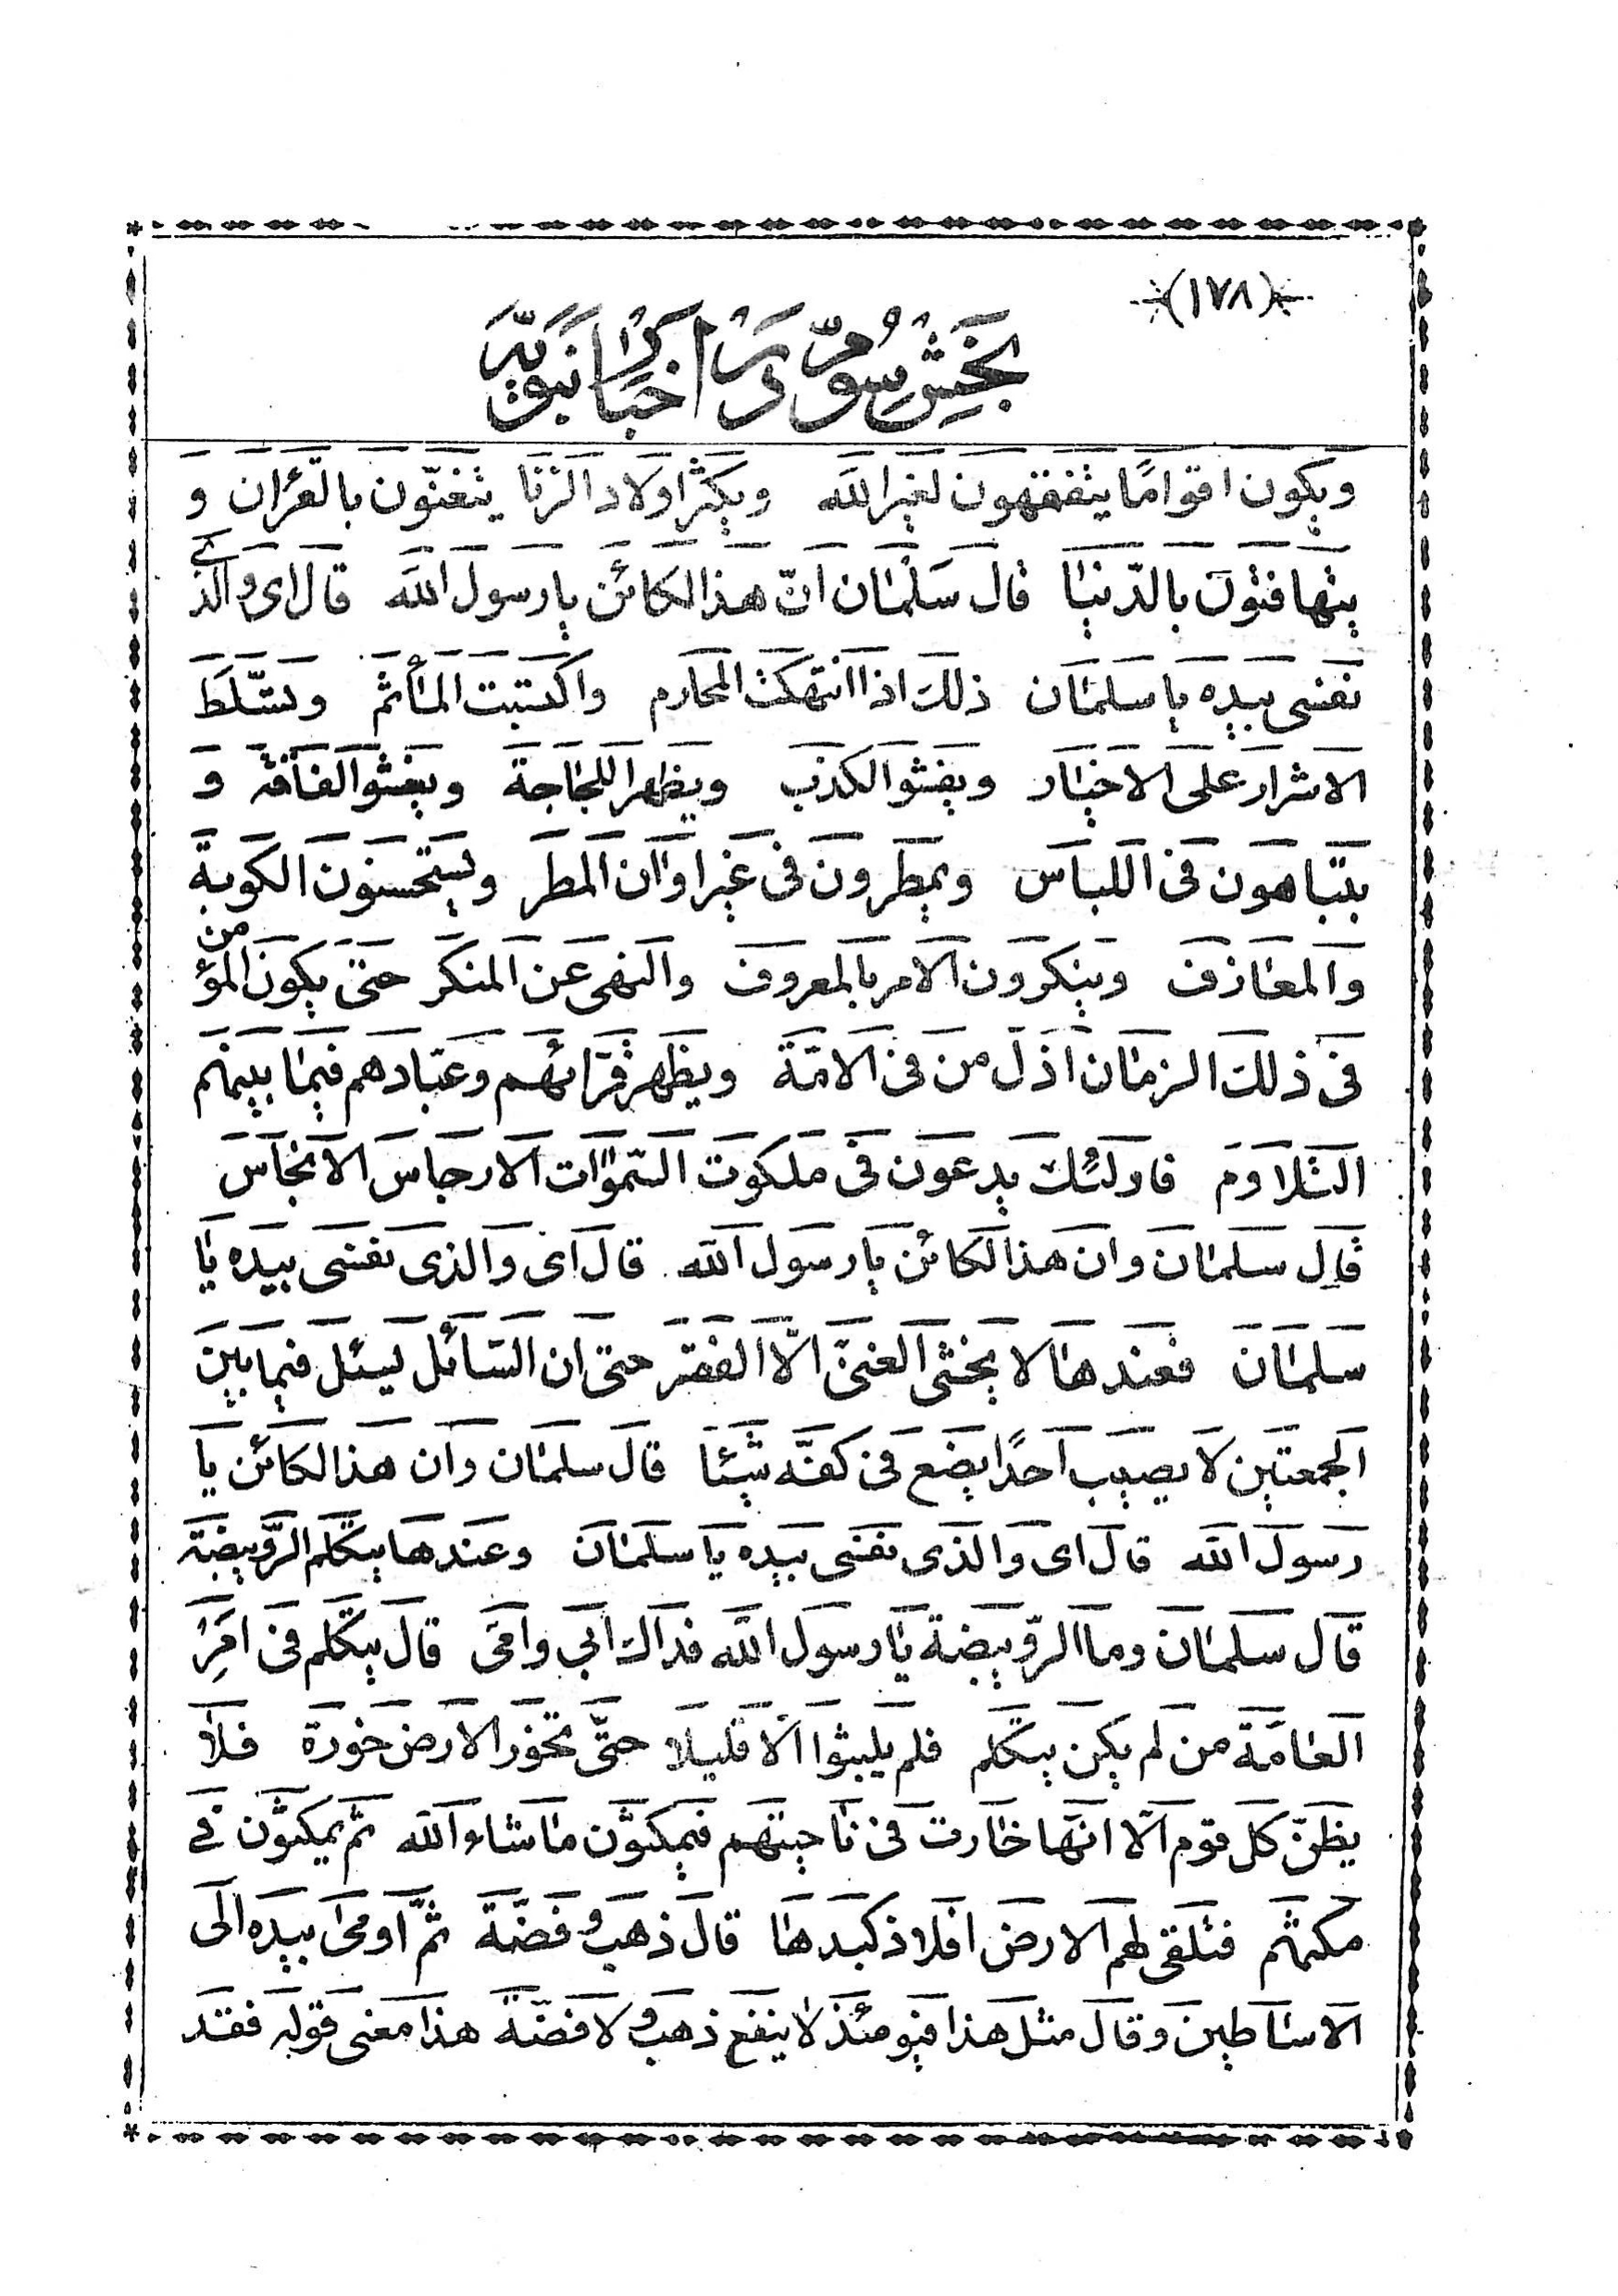 (١٧٨)
بخش سوم در اخبار نبویه
ویکون اقوامًا یتفقهون لغیر الله ویکثر اولاد الزنا یتغنّون بالقرءان و
یتهافتون بالدّنیا قال سلمان انّ هذا لکائن یا رسول الله قال ای والذی
نفسی بیده یا سلمان ذلك اذا انتهکت المحارم واکتسبت المأثم وتسّلط
الاشرار علی الاخیار ویفشو الکذب ویظهر اللجاجة ویفشو الفاقة و
یتباهون فی اللباس ویمطرون فی غیر اوان المطر ویستحسنون الکوبة
والمعازف وینکرون الامر بالمعروف والنهی عن المنکر حتی یکون المؤمن
فی ذلك الزمان اذل من فی الامّة ویظهر قرّائهم وعبّادهم فیما بینهم
التلاوم فاولئك یدعون فی ملکوت السّموات الارجاس الانجاس
قال سلمان وان هذا لکائن یا رسول الله قال ای والذی نفسی بیده یا
سلمان فعندها لا یخشی الغنیّ الّا الفقر حتی ان السّائل لیسئل فیما بین
الجمعتین لا یصیب احدًا یضع فی کفّه شیئا قال سلمان وان هذا لکائن یا
رسول الله قال ای والذی نفسی بیده یا سلمان وعندها یتکلم الرّویبضة
قال سلمان وما الرّویبضة یا رسول الله فداك ابی وامّی قال یتکلم فی امر
العامّة من لم یکن یتکلم فلم یلبثوا الّا قلیلا حتّی تخور الارض خورة فلا
یظنّ کل قوم الّا انّها خارت فی ناحیتهم فیمکثون ما شاء الله ثم یمکثون فی
مکثهم فتلقی لهم الارض افلاذ کبدها قال ذهب و فضّة ثمّ اومی بیده الی
الاساطین وقال مثل هذا فیومئذ لا ینفع ذهب و لا فضّة هذا معنی قوله فقد